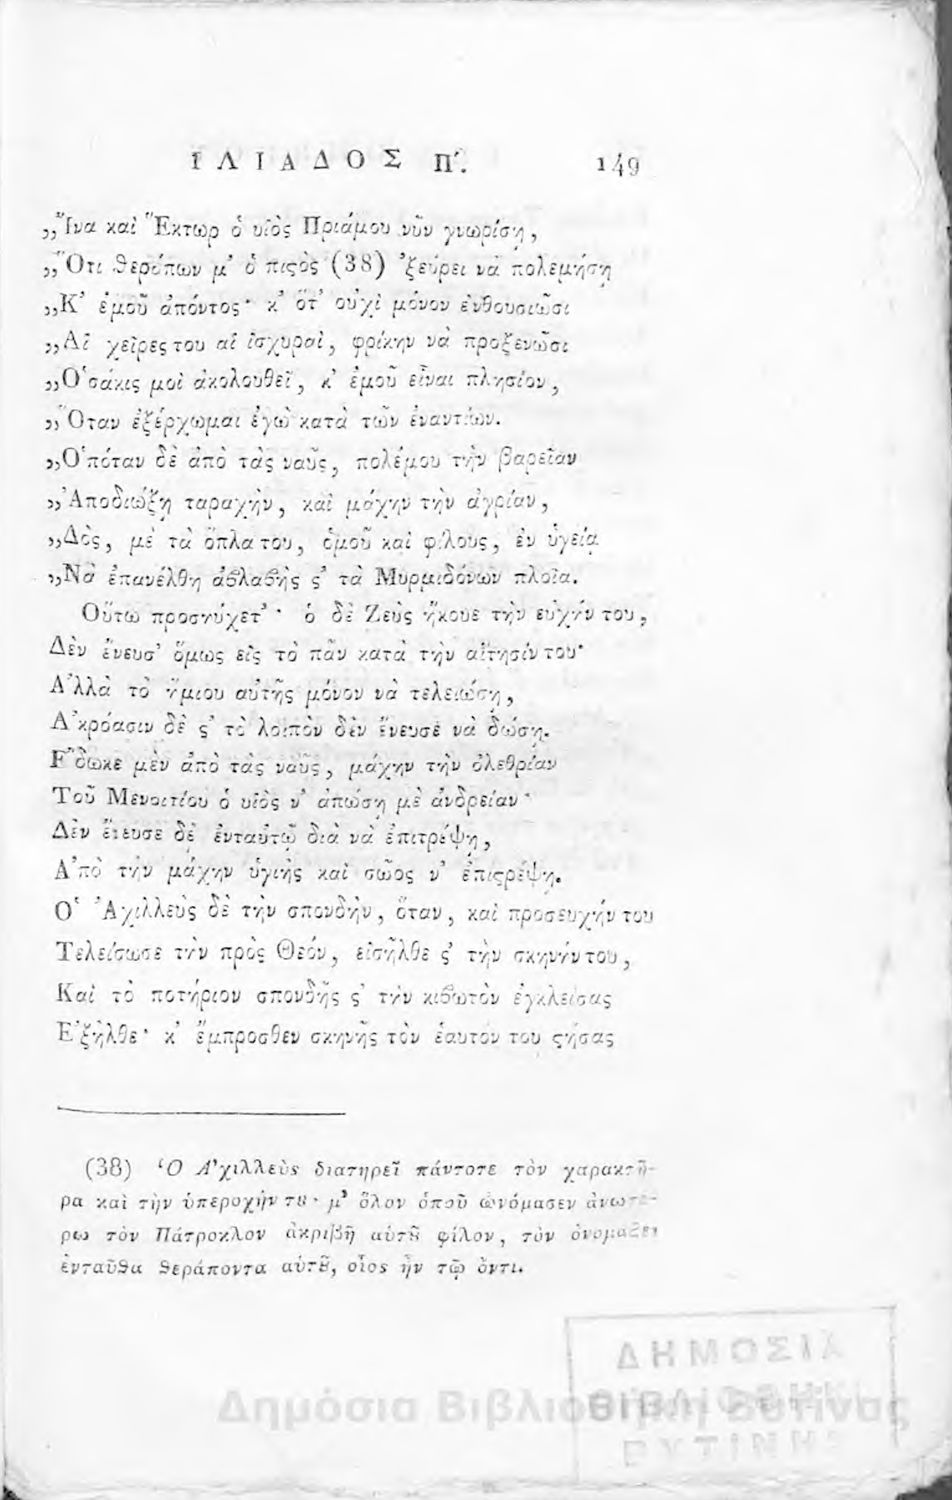 ΙΛΙΑΔΟΣ Π'. 149
„Ἵνα καὶ Ἕκτωρ ὁ υἱὸς Πριάμου νῦν γνωρίσῃ,
„Ὅτι θεράπων μ' ὁ πιϛὸς (38) 'ξεύρει νὰ πολεμήσῃ
„Κ' ἐμοῦ ἀπόντος· κ' ὅτ' οὐχὶ μόνον ἐνθουσιῶσι
„Αἱ χεῖρες του αἱ ἰσχυραὶ, φρίκην νὰ προξενῶσι
„Ὁσάκις μοὶ ἀκολουθεῖ, κ' ἐμοῦ εἶναι πλησίον,
„Ὅταν ἐξέρχωμαι ἐγὼ κατὰ τῶν ἐναντίων.
„Ὁπόταν δὲ ἀπὸ τὰς ναῦς, πολέμου τὴν βαρεῖαν
„Ἀποδιώξῃ ταραχὴν, καὶ μάχην τὴν ἀγρίαν,
„Δὸς, μὲ τὰ ὅπλα του, ὁμοῦ καὶ φίλους, ἐν ὑγείᾳ
„Νὰ ἐπανέλθῃ ἀβλαβὴς ϛ' τὰ Μυρμιδόνων πλοῖα.
Οὕτω προσηύχετ'· ὁ δὲ Ζεὺς ἤκουε τὴν εὐχήν του,
Δὲν ἔνευσ' ὅμως εἰς τὸ πᾶν κατὰ τὴν αἴτησίν του·
Ἀλλὰ τὸ ἥμισυ αὐτῆς μόνον νὰ τελειώσῃ,
Ἀκρόασιν δὲ ϛ' τὸ λοιπὸν δὲν ἔνευσε νὰ δώσῃ.
Ἔδωκε μὲν ἀπὸ τὰς ναῦς, μάχην τὴν ὀλεθρίαν
Τοῦ Μενοιτίου ὁ υἱὸς ν' ἀπώσῃ μὲ ἀνδρείαν·
Δὲν ἔνευσε δὲ ἐνταὐτῷ διὰ νὰ ἐπιτρέψῃ,
Ἀπὸ τὴν μάχην ὑγιὴς καὶ σῶος ν' ἐπιϛρέψῃ.
Ὁ Ἀχιλλεὺς δὲ τὴν σπονδὴν, ὅταν, καὶ προσευχήν του
Τελείωσε τὴν πρὸς Θεόν, εἰσῆλθε ϛ' τὴν σκηνήν του,
Καὶ τὸ ποτήριον σπονδῆς ϛ' τὴν κιβωτὸν ἐγκλείσας
Ἐξῆλθε· κ' ἔμπροσθεν σκηνῆς τὸν ἑαυτόν του ϛήσας
(38) Ὁ Ἀχιλλεὺς διατηρεῖ πάντοτε τὸν χαρακτῆ-
ρα καὶ τὴν ὑπεροχήν τȣ· μ' ὅλον ὁποῦ ὠνόμασεν ἀνωτέ-
ρω τὸν Πάτροκλον ἀκριβῆ αὐτȣ͂ φίλον, τὸν ὀνομάζει
ἐνταῦθα θεράποντα αὐτȣ͂, οἷος ἦν τῷ ὄντι.
ΔΗΜΟΣΙΑ
Δημόσια Βιβλιοθήκη